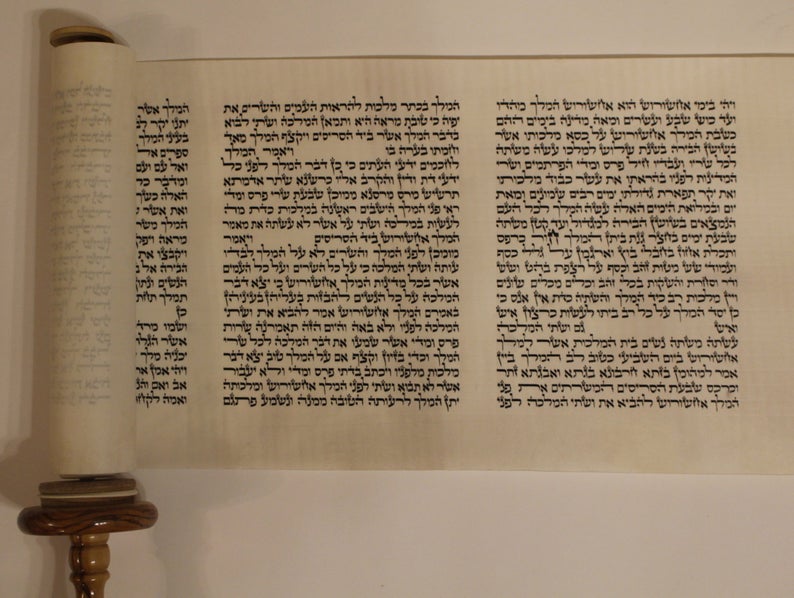 ויהי בימי אחשורוש הוא אחשורוש המלך מהדו
ועד כוש שבע ועשרים ומאה מדינה בימים ההם
כשבת המלך אחשורוש על כסא מלכותו אשר
בשושן הבירה בשנת שלוש למלכו עשה משתה
לכל שריו ועבדיו חיל פרס ומדי הפרתמים ושרי
המדינות לפניו בהראתו את עשר כבוד מלכותו
ואת יקר תפארת גדולתו ימים רבים שמונים ומאת
יום ובמלואת הימים האלה עשה המלך לכל העם
הנמצאים בשושן הבירה למגדול ועד קטן משתה
שבעת ימים בחצר גנת ביתן המלך חור כרפס
ותכלת אחוז בחבלי בוץ וארגמן על גלילי כסף
ועמודי שש מטות זהב וכסף על רצפת בהט ושש
ודר וסחרת והשקות בכלי זהב וכלים מכלים שונים
ויין מלכות רב כיד המלך והשתיה כדת אין אנס כי
כן יסד המלך על כל רב ביתו לעשות כרצון איש
ואיש גם ושתי המלכה
עשתה משתה נשים בית המלכות אשר למלך
אחשורוש ביום השביעי כטוב לב המלך ביין
אמר למהומן בזתא חרבונא בגתא ואבגתא זתר
וכרכס שבעת הסריסים המשרתים את פני
המלך אחשורוש להביא את ושתי המלכה לפני
המלך בכתר מלכות להראות העמים והשרים את
יפיה כי טובת מראה היא ותמאן המלכה ושתי לבוא
בדבר המלך אשר ביד הסריסים ויקצף המלך מאד
וחמתו בערה בו ויאמר המלך
לחכמים ידעי העתים כי כן דבר המלך לפני כל
ידעי דת ודין והקרב אליו כרשנא שתר אדמתא
תרשיש מרס מרסנא ממוכן שבעת שרי פרס ומדי
ראי פני המלך הישבים ראשנה במלכות כדת מה
לעשות במלכה ושתי על אשר לא עשתה את מאמר
המלך אחשורוש ביד הסריסים ויאמר
מומכן לפני המלך והשרים לא על המלך לבדו
עותה ושתי המלכה כי על כל השרים ועל כל העמים
אשר בכל מדינות המלך אחשורוש כי יצא דבר
המלכה על כל הנשים להבזות בעליהן בעיניהן
באמרם המלך אחשורוש אמר להביא את ושתי
המלכה לפניו ולא באה והיום הזה תאמרנה שרות
פרס ומדי אשר שמעו את דבר המלכה לכל שרי
המלך וכדי בזיון וקצף אם על המלך טוב יצא דבר
מלכות מלפניו ויכתב בדתי פרס ומדי ולא יעבור
אשר לא תבוא ושתי לפני המלך אחשורוש ומלכותה
יתן המלך לרעותה הטובה ממנה ונשמע פתגם
המלך אשר
יתנו יקר
בעיני המלך
ספרים אל
ואל עם ועם
ומדבר כל
האלה כשך
ואת אשר
המלך משר
מראה ויפק
ויקבצו את
הבירה אל
הנשים ונתון
תמלך תחת
כן
ושמו מרד
אשר הגל
יכניה מלך
ויהי אמן
אב ואם
ואמה לקח